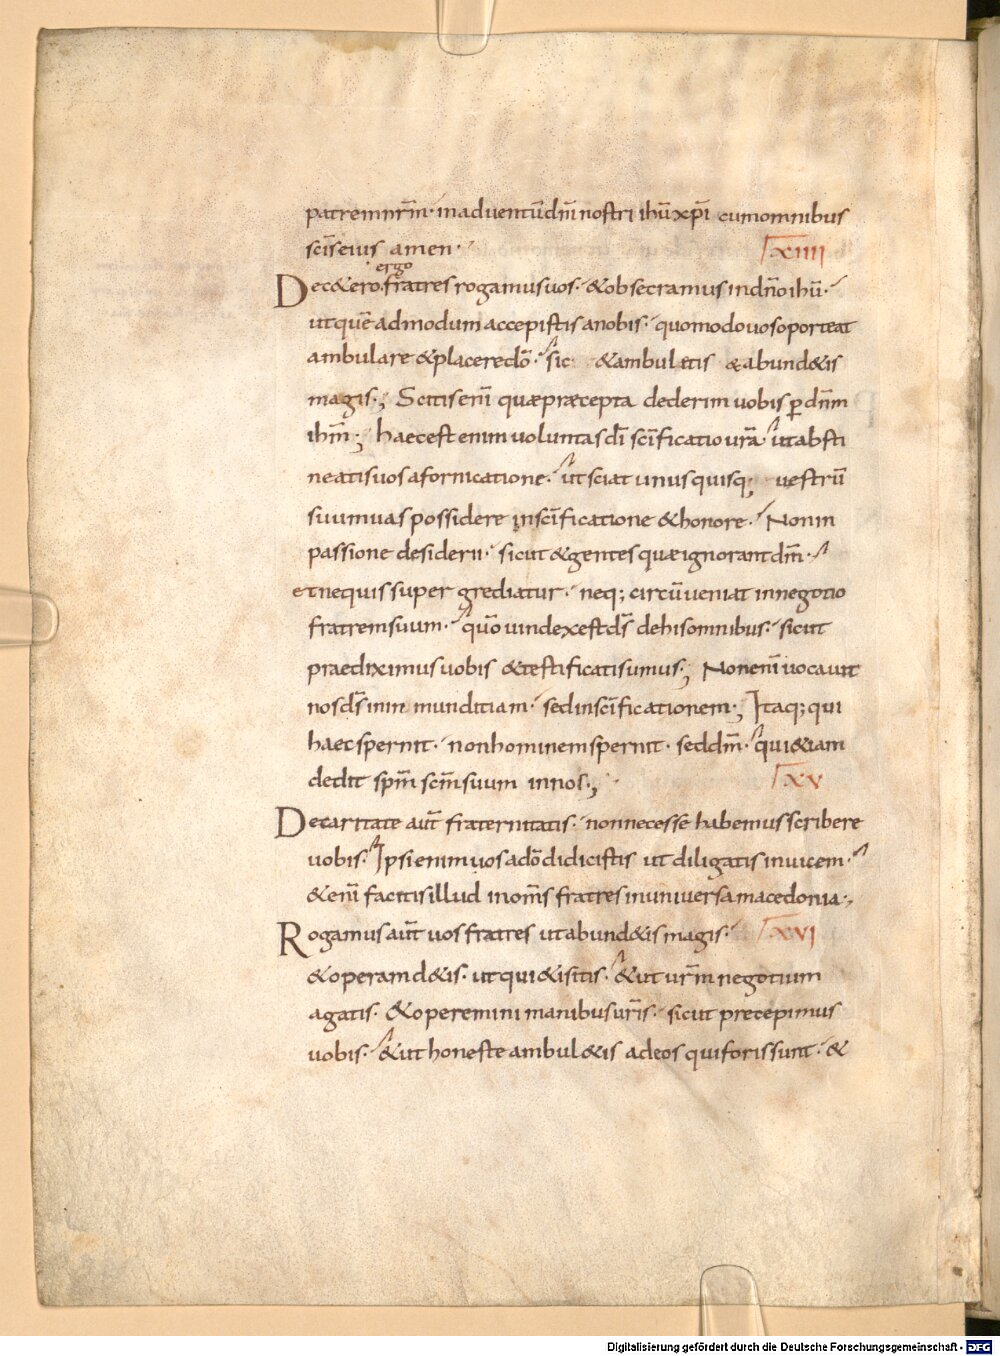 patrem nr̄m· in aduentū dn̄i nostri ihū xp̄i cum omnibus
sc̄is eius amen· XIIII
ergo
De c&ero· fratres rogamus uos· & obsecramus in dn̄o ihū·
ut quēadmodum accepistis a nobis· quomodo uos oporteat
ambulare & placere dō· sic & ambuletis & abund&is
magis·; Scitis enī quæ præcepta dederim uobis p̲ dn̄m
ihm̄·; haec est enim uoluntas dī sc̄ificatio urā· ut absti
neatis uos a fornicatione· ut sciat unusquisq; uestrū
suum uas possidere in sc̄ificatione & honore· Non in
passione desiderii· sicut & gentes quæ ignorant dm̄·
et nequis supergrediatur· neq; circūueniat in negotio
fratrem suum· quō uindex est ds̄ de his omnibus· sicut
praediximus uobis & testificati sumus·; Non enī uocauit
nos ds̄ in inmunditiam· sed in sc̄ificationem·; Itaq; qui
haec spernit· non hominem spernit· sed dm̄· qui &iam
dedit spm̄ scm̄ suum in nos·; XV
De caritate aut̄ fraternitatis· non necesse habemus scribere
uobis· Ipsi enim uos a dō didicistis ut diligatis inuicem·
& enī facitis illud in omn̄s fratres in uniuersa macedonia·,
Rogamus aut̄ uos fratres ut abund&is magis· XVI
& operam d&is· ut qui&i sitis· & ut ur̄m negotium
agatis· & operemini manibus uris̄· sicut precepimus
uobis· & ut honeste ambul&is ad eos qui foris sunt· &
Digitalisierung gefördert durch die Deutsche Forschungsgemeinschaft - DFG